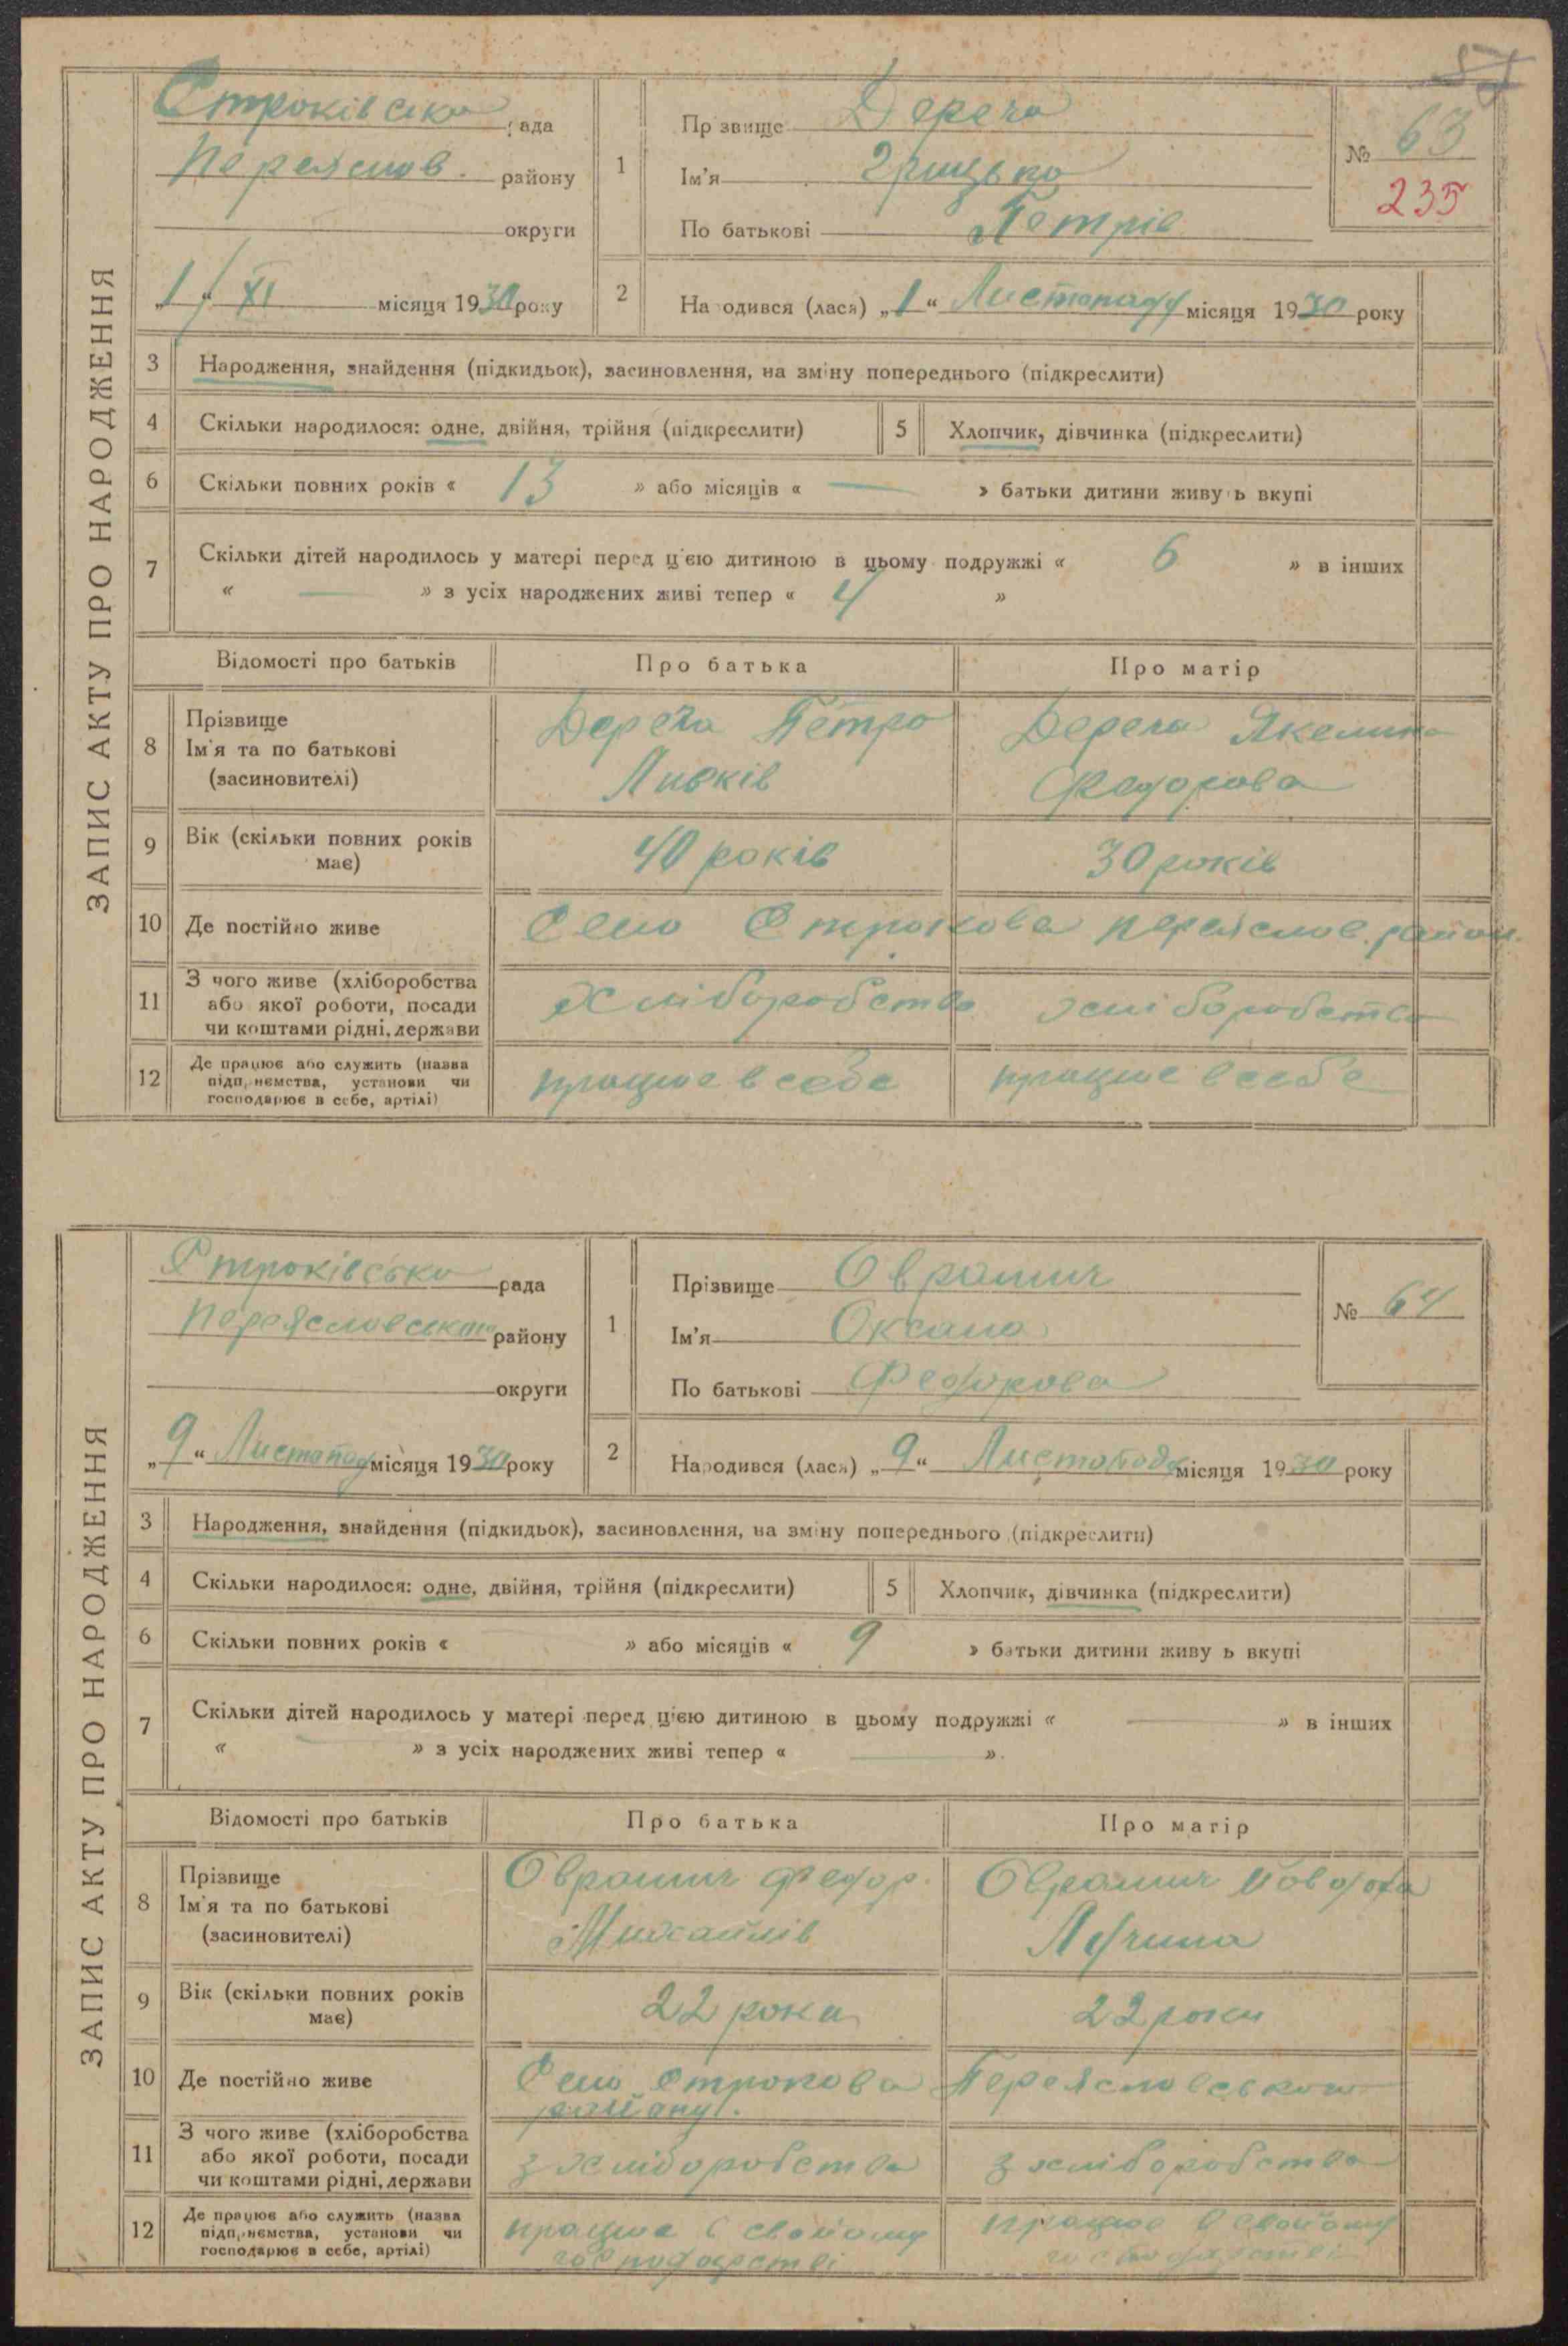 ЗАПИС АКТУ ПРО НАРОДЖЕННЯ
Строківська рада
Переяслов. району
округи
„1“ XI місяця 1930 року
1
Прізвище Дереча
Ім'я Грицько
По батькові Петрів
№ 63
235
2
Народився (лася) „1“ Листопаду місяця 1930 року
3 Народження, знайдення (підкидьок), засиновлення, на зміну попереднього (підкреслити)
4 Скільки народилося: одне, двійня, трійня (підкреслити)
5 Хлопчик, дівчинка (підкреслити)
6 Скільки повних років « 13 » або місяців « — » батьки дитини живуть вкупі
7 Скільки дітей народилось у матері перед цією дитиною в цьому подружжі « 6 » в інших
« — » з усіх народжених живі тепер « 4 »
Відомості про батьків Про батька Про матір
8 Прізвище
Ім'я та по батькові
(засиновителі)
Дереча Петро
Дереча Якелина
Федорова
9 Вік (скільки повних років
має)
40 років
30 років
10 Де постійно живе
Село Строкова Переяслов. район.
11 З чого живе (хліборобства
або якої роботи, посади
чи коштами рідні, держави
Хліборобство
хліборобство
12 Де працює або служить (назва
підприємства, установи чи
господарює в себе, артілі)
працює в себе
працює в себе
ЗАПИС АКТУ ПРО НАРОДЖЕННЯ
Строківська рада
Переяславського району
округи
„9“ Листопаду місяця 1930 року
1
Прізвище Оврамич
Ім'я Оксана
По батькові Федорова
№ 64
2
Народився (лася) „9“ Листопада місяця 1930 року
3 Народження, знайдення (підкидьок), засиновлення, на зміну попереднього (підкреслити)
4 Скільки народилося: одне, двійня, трійня (підкреслити)
5 Хлопчик, дівчинка (підкреслити)
6 Скільки повних років « » або місяців « 9 » батьки дитини живуть вкупі
7 Скільки дітей народилось у матері перед цією дитиною в цьому подружжі « — » в інших
« — » з усіх народжених живі тепер « — »
Відомості про батьків Про батька Про матір
8 Прізвище
Ім'я та по батькові
(засиновителі)
Оврамич Федор.
Михайлів
Оврамич
9 Вік (скільки повних років
має)
22 роки
22 роки
10 Де постійно живе
Село Строкова Переяславського
району.
11 З чого живе (хліборобства
або якої роботи, посади
чи коштами рідні, держави
з хліборобства
з хліборобства
12 Де працює або служить (назва
підприємства, установи чи
господарює в себе, артілі)
працює в свойому
господарстві
працює в свойому
господарстві